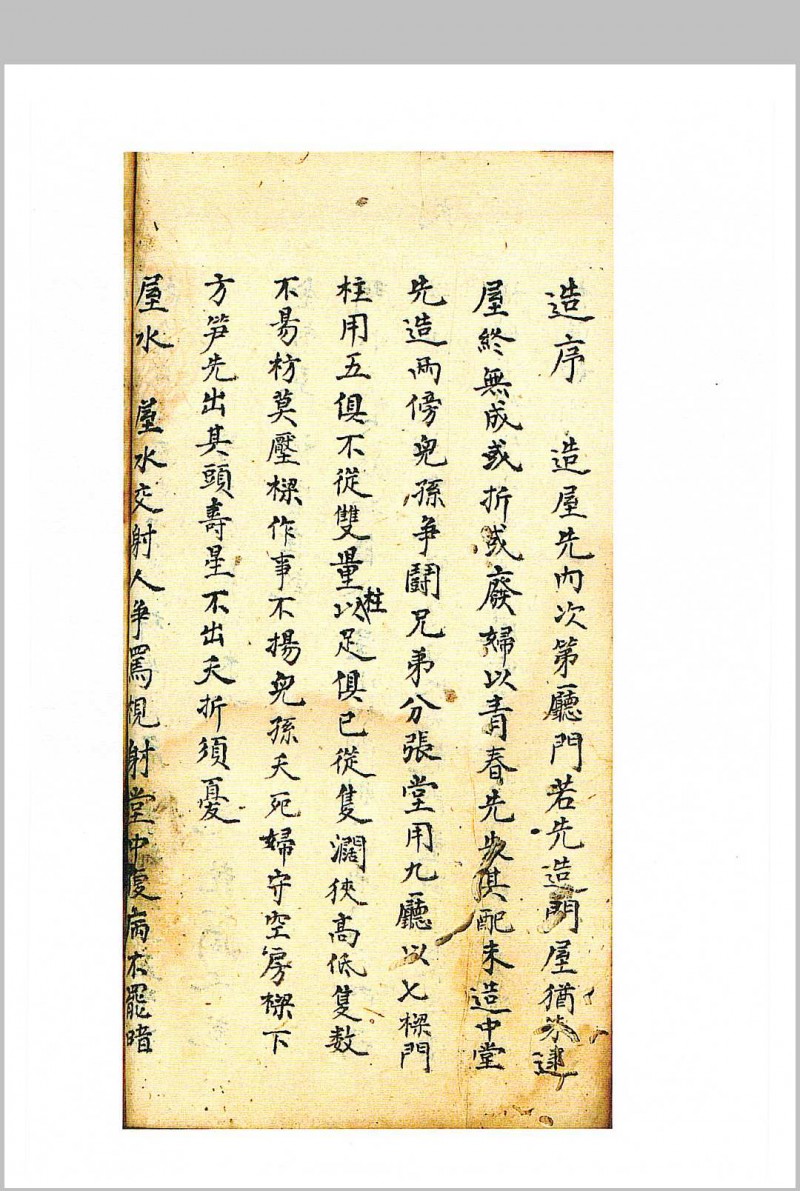 造序　造屋先內次第廳門若先造門屋猶未建
屋終無成或折或廢婦以青春先失其配未造中堂
先造兩傍兒孫爭鬪兄弟分張堂用九廳以七樑門
柱用五俱不從雙量以柱足俱已從隻濶狹高低隻數
不昜枋莫壓樑作事不揚兒孫夭死婦守空房樑下
方笋先出其頭壽星不出夭折須憂
屋水　屋水交射人爭罵視射堂中復病不罷暗